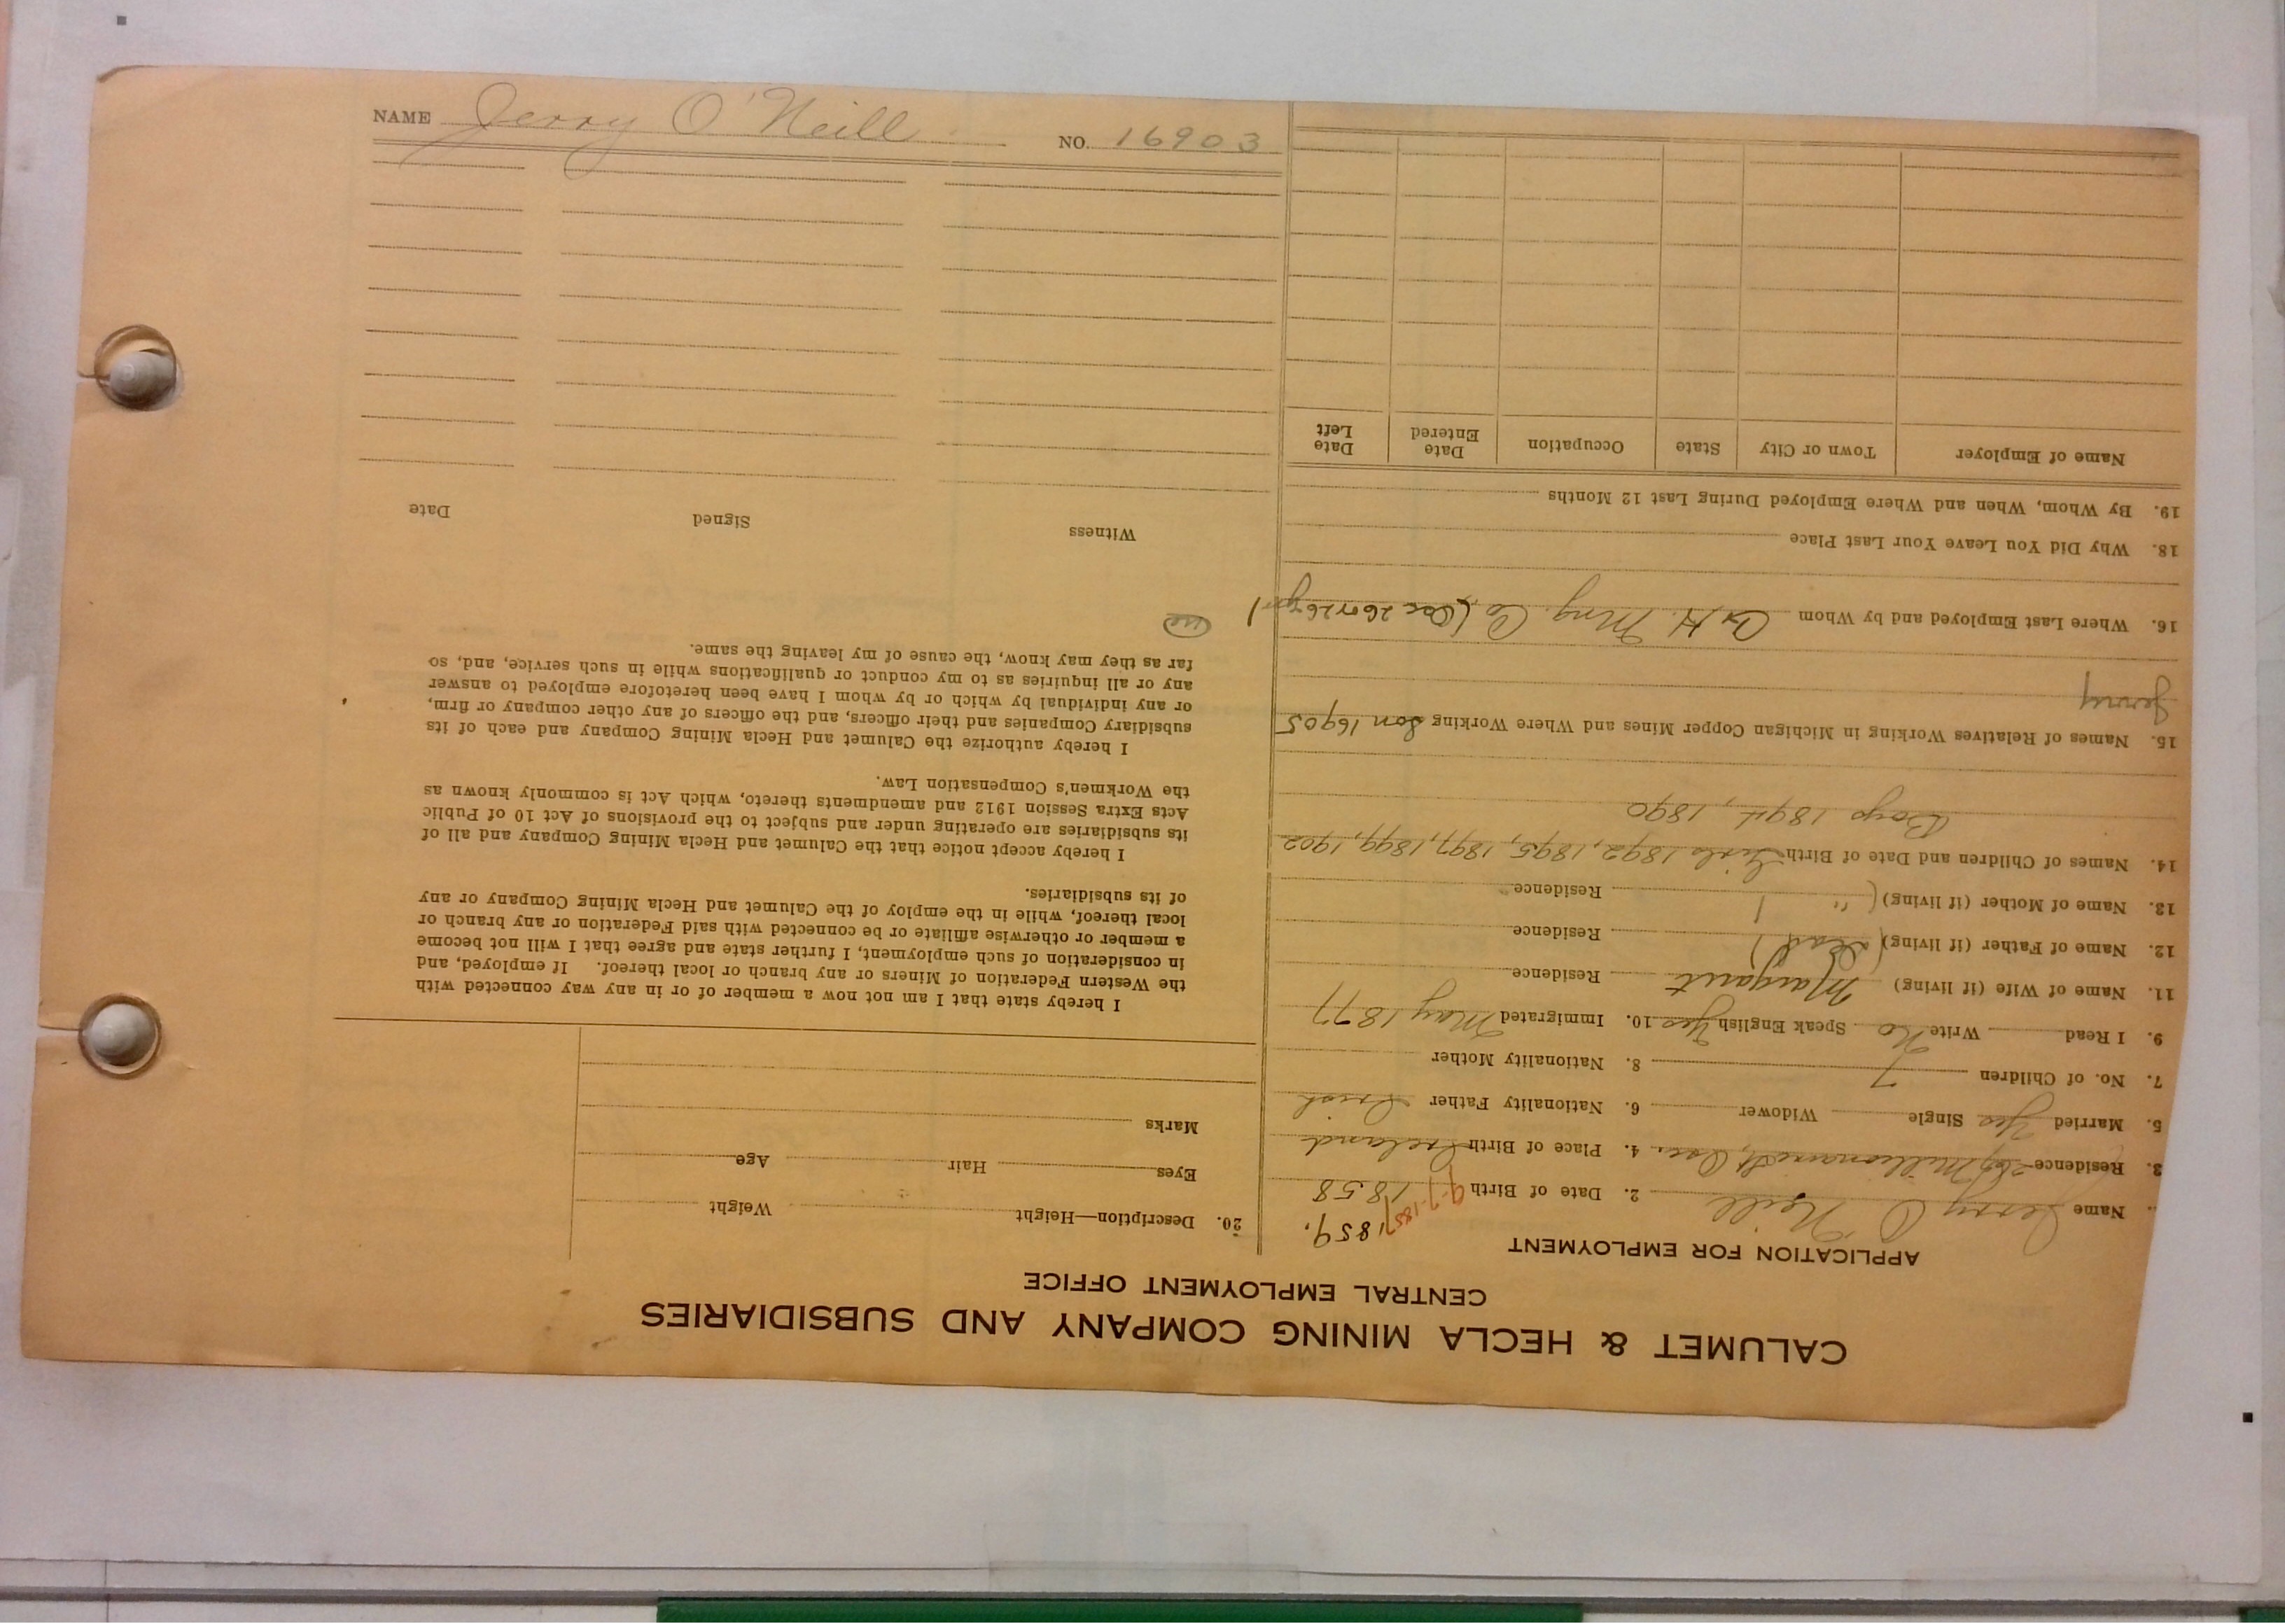 CALUMET & HECLA MINING COMPANY AND SUBSIDIARIES
CENTRAL EMPLOYMENT OFFICE
APPLICATION FOR EMPLOYMENT
1859.
9-7-1857
Name Jerry O'Neill 2. Date of Birth 1858
3. Residence 4. Place of Birth Ireland
5. Married Yes Single Widower 6. Nationality Father Irish
7. No. of Children 7 8. Nationality Mother
9. I Read Write No Speak English Yes 10. Immigrated May 1877
11. Name of Wife (if living) Margaret Residence
12. Name of Father (if living) (Dead) Residence
13. Name of Mother (if living) ( " ) Residence
14. Names of Children and Date of Birth Girls 1892, 1895, 1897, 1899, 1902
Boys 1894, 1890
15. Names of Relatives Working in Michigan Copper Mines and Where Working Son 16905
Jerry
16. Where Last Employed and by Whom C & H Mng. Co
18. Why Did You Leave Your Last Place
19. By Whom, When and Where Employed During Last 12 Months
Name of Employer Town or City State Occupation Date Entered Date Left
20. Description—Height Weight
Eyes Hair Age
Marks
I hereby state that I am not now a member of or in any way connected with
the Western Federation of Miners or any branch or local thereof. If employed, and
in consideration of such employment, I further state and agree that I will not become
a member or otherwise affiliate or be connected with said Federation or any branch or
local thereof, while in the employ of the Calumet and Hecla Mining Company or any
of its subsidiaries.
I hereby accept notice that the Calumet and Hecla Mining Company and all of
its subsidiaries are operating under and subject to the provisions of Act 10 of Public
Acts Extra Session 1912 and amendments thereto, which Act is commonly known as
the Workmen's Compensation Law.
I hereby authorize the Calumet and Hecla Mining Company and each of its
subsidiary Companies and their officers, and the officers of any other company or firm,
or any individual by which or by whom I have been heretofore employed to answer
any or all inquiries as to my conduct or qualifications while in such service, and, so
far as they may know, the cause of my leaving the same.
Witness Signed Date
NAME Jerry O'Neill NO. 16903